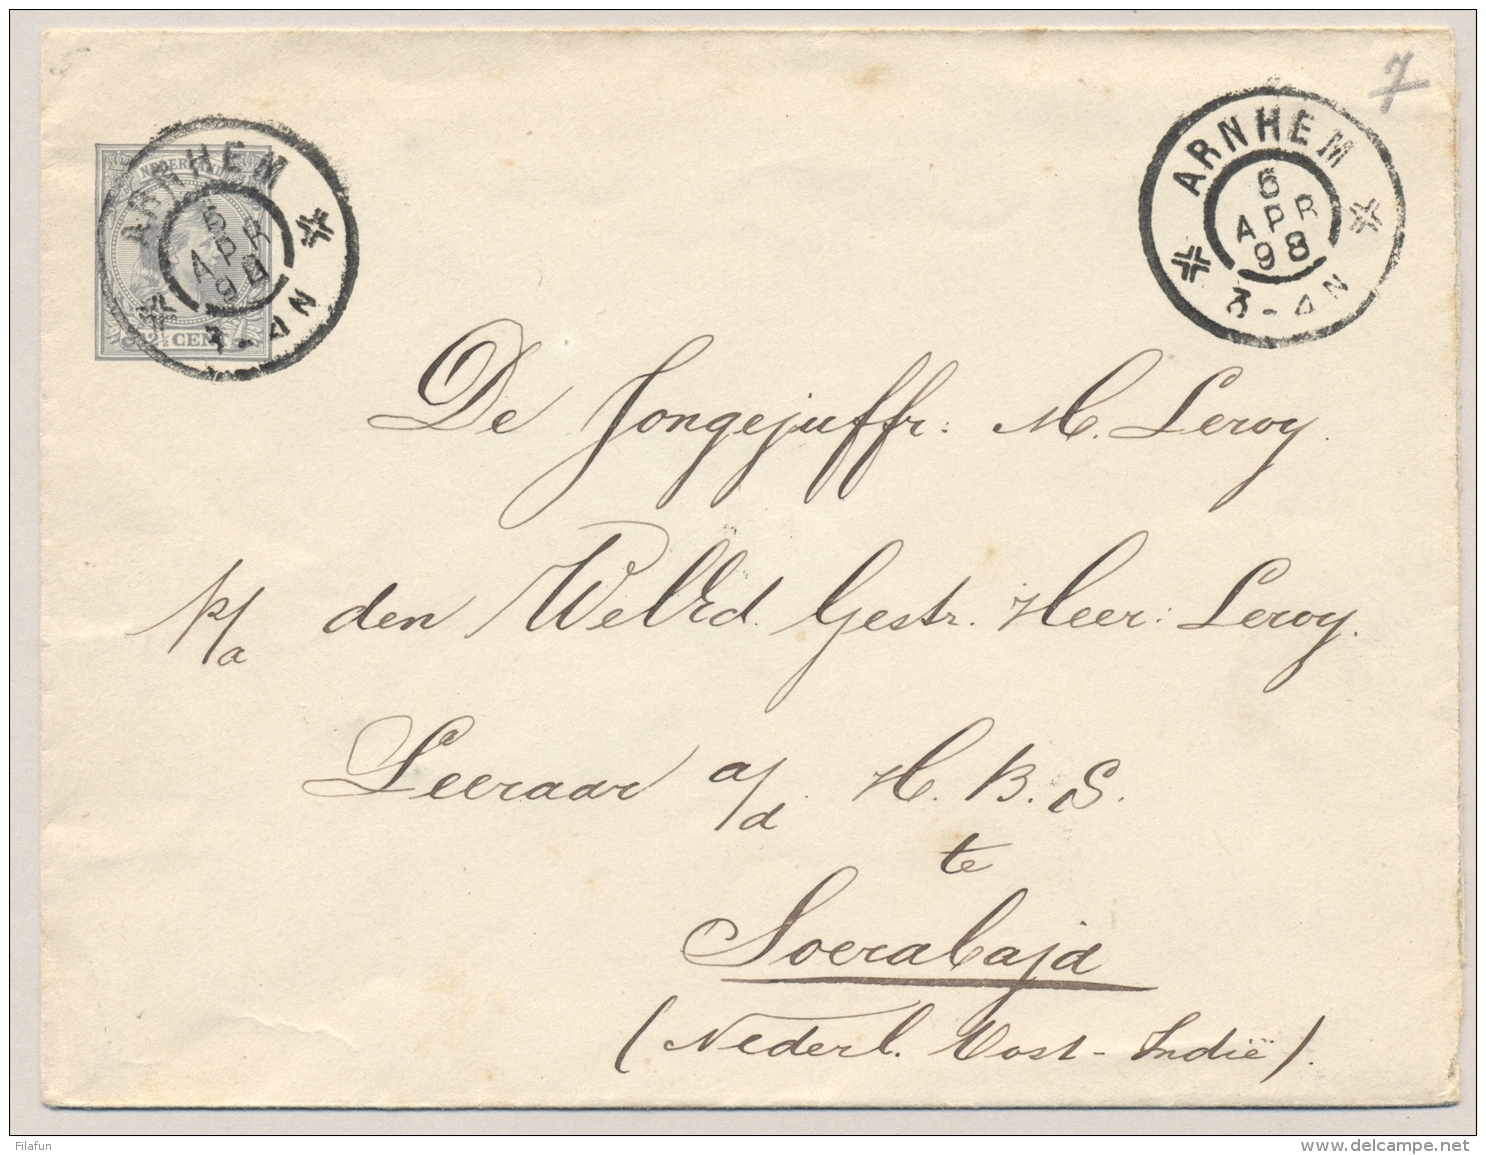 7
NEDERLAND
12½ CENT
ARNHEM
5
APR
98
3-4N
ARNHEM
5
APR
98
3-4N
De Jongejuffr: M. Leroy.
p/a den WelEd. Gestr. Heer: Leroy.
Leeraar a/d H. B. S.
te
Soerabaja
(Nederl. Oost-Indië).
Filafun
www.delcampe.net